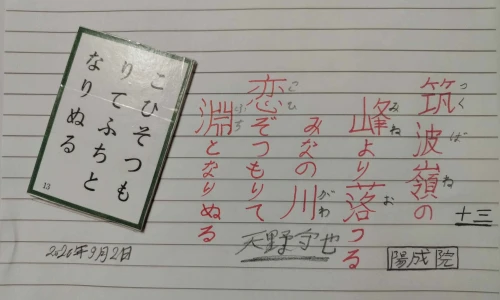 十三
つくばね
筑波嶺の
みね お
峰より落つる
がわ
みなの川
こひ
恋ぞつもりて
ふち
淵となりぬる
陽成院
天野守也
こひそつも
りてふちと
なりぬる
13
2026年9月2日